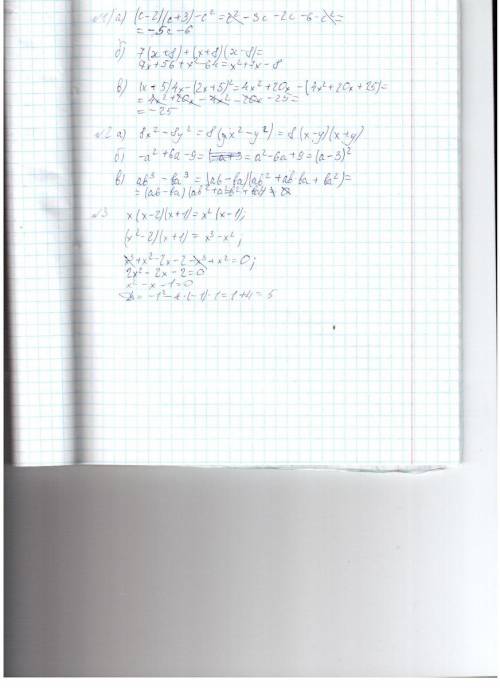 №1 а) (c-2)(c+3)-c² = c² - 3c - 2c - 6 - c² =
= -5c - 6
б) 7(x+8)+(x+8)(x-8)=
7x+56+x²-64=x²+7x-8
в) (x+5)4x-(2x+5)²=4x²+20x-(4x²+20x+25)=
= 4x²+20x-4x²-20x-25=
= -25
№2 а) 8x²-8y²=8(x²-y²)=8(x-y)(x+y)
б) -a²+6a-9= = a²-6a+9=(a-3)²
в) ab³-ba³=(ab-ba)(ab²+ab ba+ba²)=
= (ab-ba)(ab²+a²b²+ba²)
№3 x(x-2)(x+1)=x²(x-1);
(x²-2)(x+1)=x³-x²;
x³+x²-2x-2-x³+x²=0;
2x²-2x-2=0
x²-x-1=0
D=-1²-4·(-1)·1=1+4=5